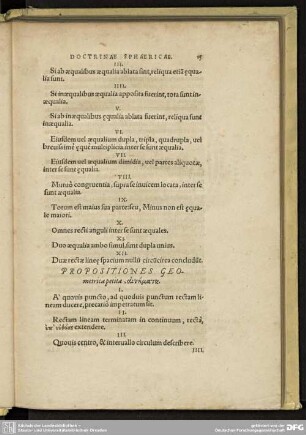 DOCTRINAE SPHAERICAE.
III.
Si ab æqualibus æqualia ablata sint, reliqua etiã ęqua-
lia sunt.
IIII.
Si inæqualibus æqualia apposita fuerint, tota sunt in-
æqualia.
V.
Si ab inæqualibus ęqualia ablata fuerint, reliqua sunt
inæqualia.
VI.
Eiusdem uel æqualium dupla, tripla, quadrupla, uel
breuissimè ęque multiplicia inter se sunt æqualia.
VII.
Eiusdem uel æqualium dimidia, uel partes aliquotæ,
inter se sunt ęqualia.
VIII.
Mutuò congruentia, supra se inuicem locata, inter se
sunt æqualia.
IX.
Totum est maius sua parte seu, Minus non est ęqua-
le maiori.
X.
Omnes recti anguli inter se sunt æquales.
XI.
Duo æqualia ambo simul sunt dupla unius.
XII.
Duæ rectæ lineę spacium nullũ circũcirca concludũt.
PROPOSITIONES GEO-
metricæ petitæ
I.
A' quouis puncto, ad quoduis punctum rectam li-
neam ducere, precario impetratum sit.
II.
Rectam lineam terminatam in continuum, rectã,
extendere.
III.
Quouis centro, & interuallo circulum describere.
IIII.